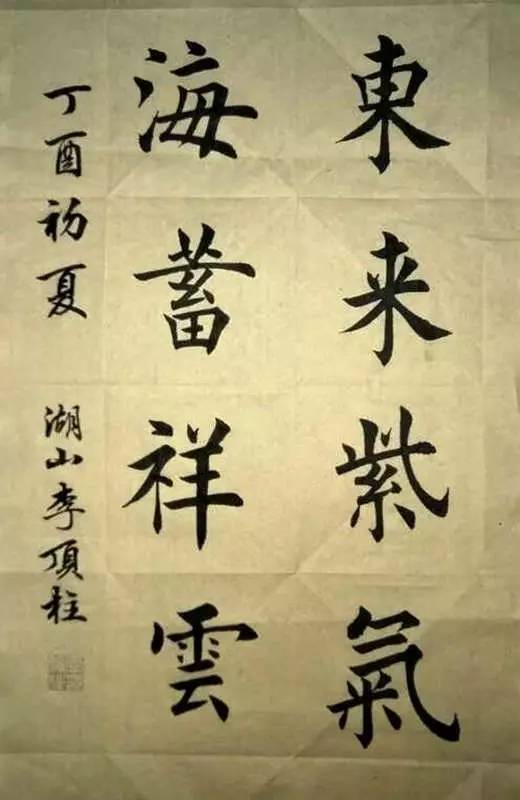 東来紫氣
海蓄祥雲
丁酉初夏 湖山李頂柱